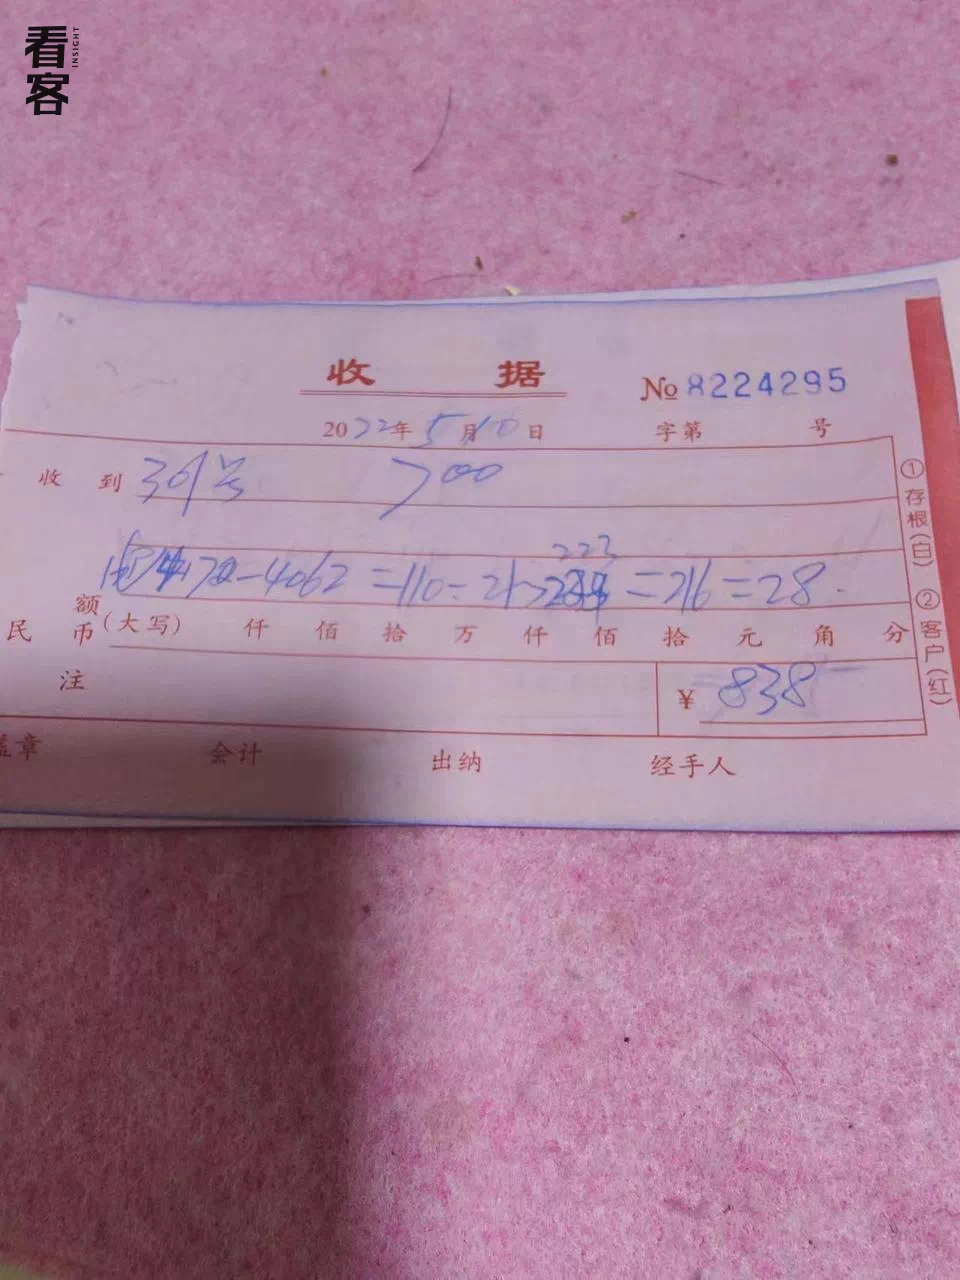 看客
INSIGHT
收 据
№ 8224295
2022年5月10日 字第 号
收到 301号 700
223
4172-4062=110=
=216=28.
额
民 币(大写) 仟 佰 拾 万 仟 佰 拾 元 角 分
注 ¥ 838
盖章 会计 出纳 经手人
①存根(白) ②客户(红)